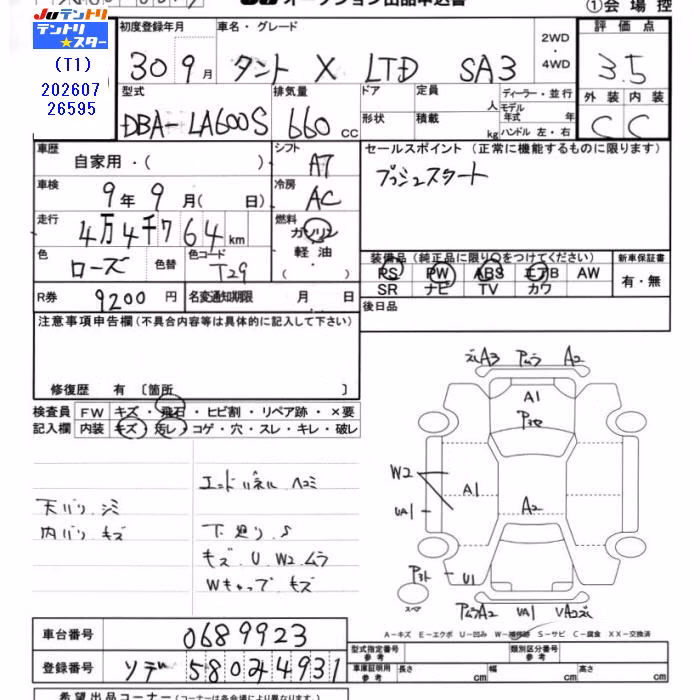 JU オークション出品申込書
①会場控
JUテントリ
テントリ★スター
(T1)
202607
26595
初度登録年月
30 9月
車名・グレード
タント X LTD SA3
2WD
・
4WD
評価点
3.5
外装 内装
C C
型式
DBA-LA600S
排気量
660 cc
ドア
形状
定員
人
積載
kg
ディーラー・並行
モデル年式 年
ハンドル 左・右
車歴
自家用・( )
シフト
AT
セールスポイント (正常に機能するものに限ります)
プッシュスタート
車検
9年9月( 日)
冷房
AC
走行
4万4千764km
燃料
ガソリン
軽油
( )
色
ローズ
色替
色コード
T29
装備品 (純正品に限り〇をつけてください)
PS PW ABS エアB AW
SR ナビ TV カワ
新車保証書
有・無
R券
9200円
名変通知期限 月 日
後日品
注意事項申告欄(不具合内容等は具体的に記入して下さい)
修復歴 有 〔箇所 〕
検査員
記入欄
FW キズ・飛石・ヒビ割・リペア跡・×要
内装 キズ・汚レ・コゲ・穴・スレ・キレ・破レ
エンドパネル ヘコミ
天バリ シミ
内バリ キズ
下廻り S
キズ U W2 ムラ
Wキャップ キズ
A3 ムラ A2
A1
W2
A1
UA1
A2
U1
スペア
A2 UA1
A-キズ E-エクボ U-凹み W-補修跡 S-サビ C-腐食 XX-交換済
車台番号
0689923
登録番号
ソデ 580 4931
型式指定番号
参考
類別区分番号
参考
車庫証明用
参考
長さ cm
幅 cm
高さ cm
希望出品コーナー (コーナーは各会場により異なります。)